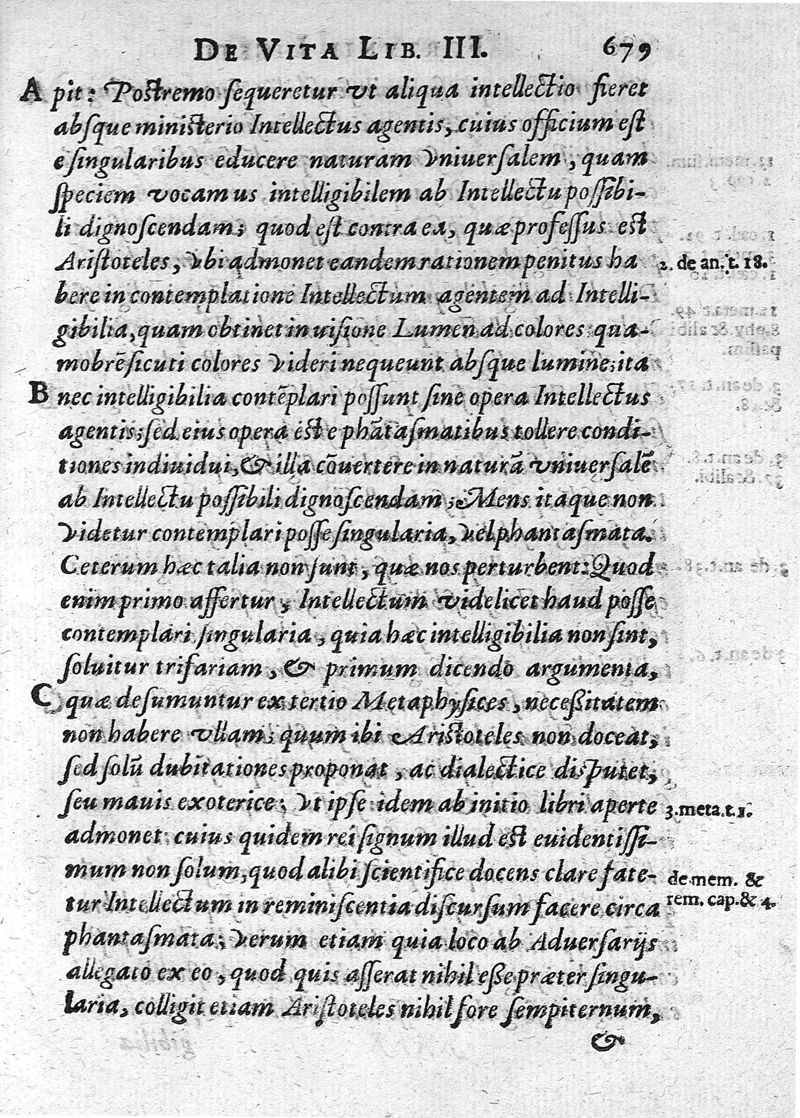 DE VITA LIB. III. 679
A pit: Postremo sequeretur vt aliqua intellectio fieret
absque ministerio Intellectus agentis, cuius officium est
e singularibus educere naturam vniuersalem, quam
speciem vocamus intelligibilem ab Intellectu possibi-
li dignoscendam; quod est contra ea, quæ professus est
Aristoteles, vbi admonet eandem rationem penitus ha 2. de an. t. 18.
bere in contemplatione Intellectum agentem ad Intelli-
gibilia, quam obtinet in uisione Lumen ad colores: qua-
mobrē sicuti colores videri nequeunt absque lumine; ita
B nec intelligibilia contēplari possunt sine opera Intellectus
agentis; sed eius opera est e phātasmatibus tollere condi-
tiones indiuidui, & illa cōuertere in naturā vniuersalē
ab Intellectu possibili dignoscendam; Mens itaque non
videtur contemplari posse singularia, vel phantasmata.
Ceterum hæc talia non sunt, quæ nos perturbent: Quod
enim primo affertur, Intellectum videlicet haud posse
contemplari singularia, quia hæc intelligibilia non sint,
soluitur trifariam, & primum dicendo argumenta,
C quæ desumuntur ex tertio Metaphysices, necessitatem
non habere vllam; quum ibi Aristoteles non doceat,
sed solū dubitationes proponat, ac dialectice disputet,
seu mauis exoterice; vt ipse idem ab initio libri aperte 3. meta. t. 1.
admonet: cuius quidem rei signum illud est euidentissi-
mum non solum, quod alibi scientifice docens clare fate- de mem. &
tur Intellectum in reminiscentia discursum facere circa rem. cap. & 4.
phantasmata; verum etiam quia loco ab Aduersarijs
allegato ex eo, quod quis asserat nihil esse præter singu-
laria, colligit etiam Aristoteles nihil fore sempiternum,
&